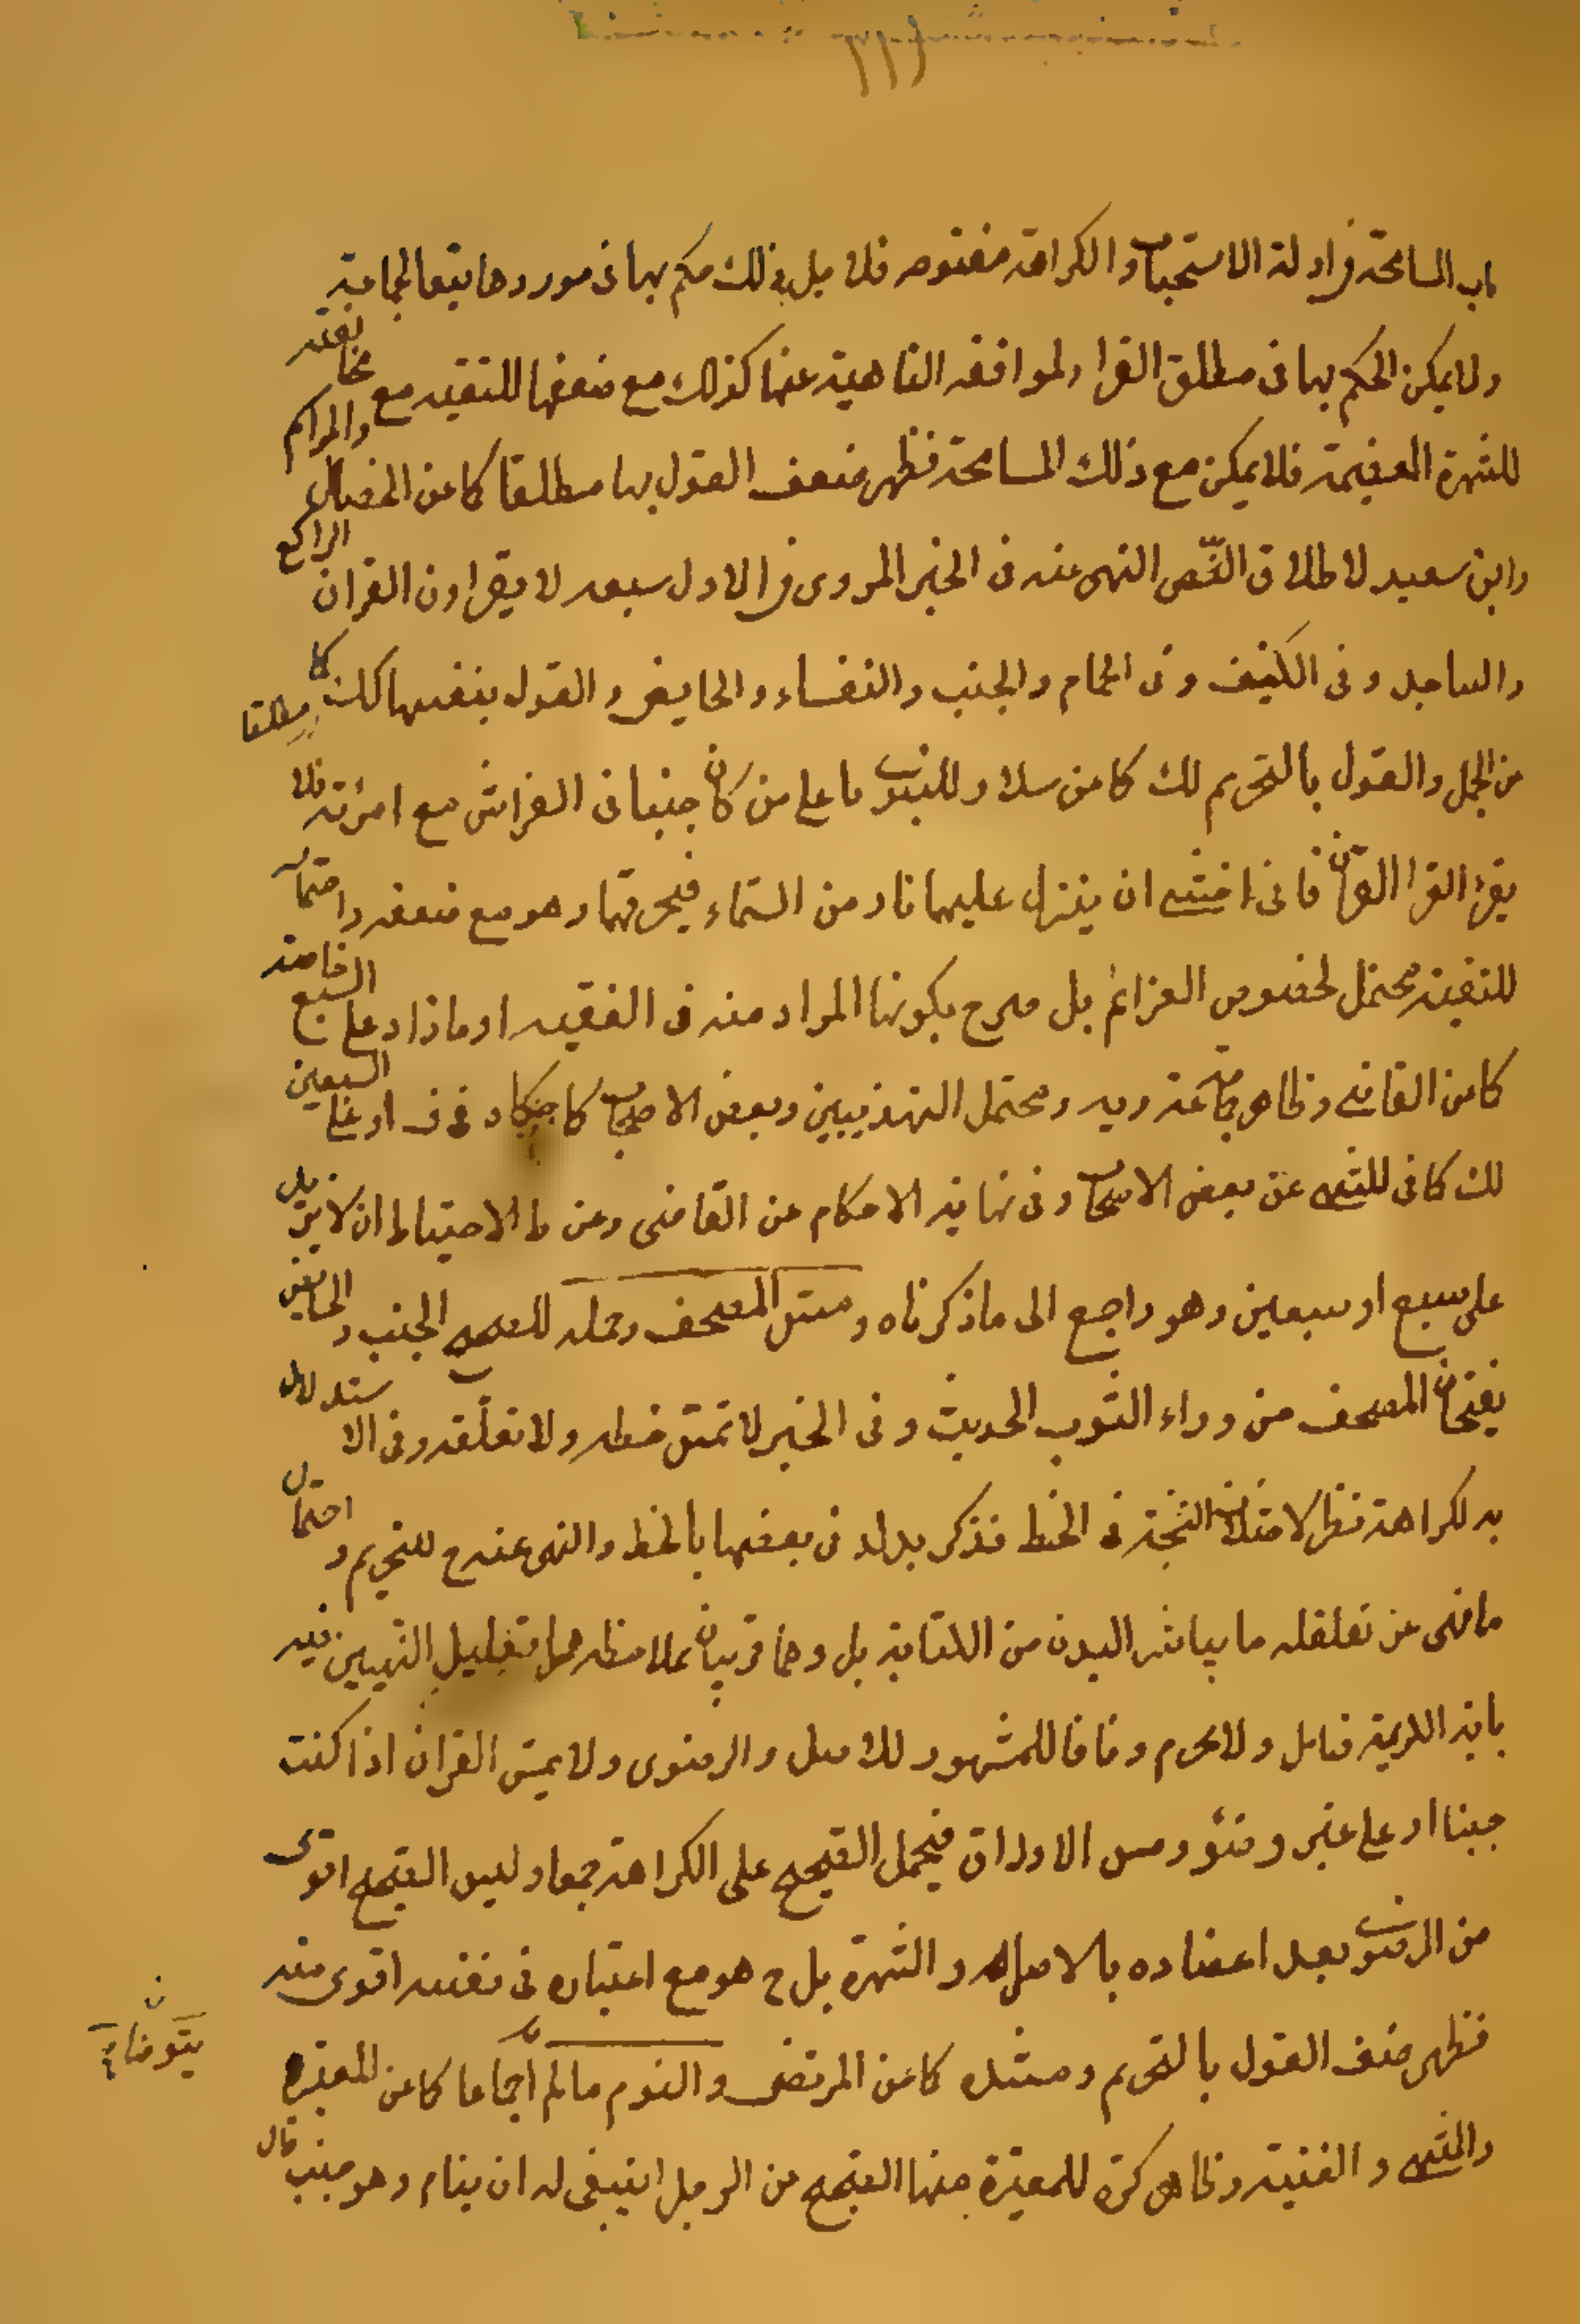 ١١١
باب المسامحة في ادلة الاستحباب والكراهة مفتوحه فلا بل بذلك يحكم بها في موردها تبعا لجماعة
ولا يمكن الحكم بها في مطلق القراء ولموافقه الناهية عنها كذلك مع ضعفها للتقيه مع مخالفته
للشهرة العظيمة فلا يمكن مع ذلك المسامحة فظهر ضعف القول بها مطلقا كما عن الخصال والمراسم
وابن سعيد لاطلاق النّص النهي عنه في الخبر المروي في الاول سبعه لا يقراون القران الراكع
والساجد وفي الكنيف وفي الحمام والجنب والنفساء والحايض والقول بنفيها كك مطلقا كما
عن الجمل والقول بالتحريم لك كما عن سلار وللنبوي يا علي من كان جنبا في الفراش مع امرئته فلا
يقرأ القرا القران فاني اخشى ان ينزل عليهما نار من السّماء فيحرقهما وهو مع ضعفه واحتماله
للتقية محتمل لخصوص العزائم بل صرح بكونها المراد منه في الفقيه او ما زاد على السبع خاصة
كما عن القاضي وظاهر جماعة ويه ومحتمل التهذيبين وبعض الاصحاب كما حكاه في ف او على السبعين
لك كما في للنتهى عن بعض الاصحاب وفي نهاية الاحكام عن القاضي وعن ط الاحتياط ان لا يزيد
على سبع او سبعين وهو راجع الى ما ذكرناه ومسّ المصحف وحمله للصحيح الجنب والحايض
يفتحان المصحف من وراء الثوب الحديث وفي الخبر لا تمسّ خطه ولا تعلّقه وفي الاستدلال
به لكراهة نظر لاختلاف النسخة في الخط فذكر بدله في بعضها بالخط والنهي عنه ح للتحريم واحتمال
ما نهى عن تعلقله ما يباشر البدن من الكتابة بل وهما قريبان بملاحظه تعليل النهيين فيه
باية الكريمة فتامل ولا يحرم وفاقا للمشهور للاصل والرضوي ولا يمسّ القران اذا كنت
جنبا او على غير وضؤ ومس الاوراق فيحمل الصّحيح على الكراهة جمعا وليس الصّحيح اقوى
من الرضوي بعد اعتضاده بالاصل و الشهرة بل ح هو مع اعتباره في نفسه اقوى منه
فظهر ضعف القول بالتحريم ومثله كما عن المرتضى والنوم ما لم اجماعا كما عن المعتبره
يتوضا
والمنتهى و الغنية وظاهر كرة للمعتبرة منها الصّحيح عن الرجل اينبغي له ان ينام وهو جنب قال